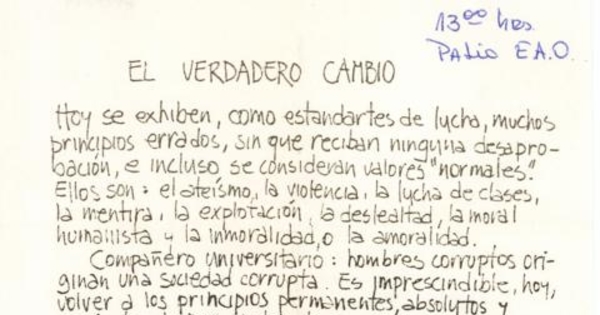 13⁰⁰ hrs.
Patio E.A.O.
EL VERDADERO CAMBIO
Hoy se exhiben, como estandartes de lucha, muchos
principios errados, sin que reciban ninguna desapro-
bación, e incluso se consideran valores "normales".
Ellos son: el ateísmo, la violencia, la lucha de clases,
la mentira, la explotación, la deslealtad, la moral
humanista y la inmoralidad, o la amoralidad.
Compañero universitario: hombres corruptos ori-
ginan una sociedad corrupta. Es imprescindible, hoy,
volver a los principios permanentes, absolutos y